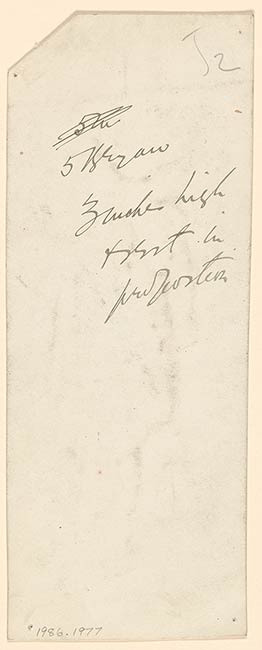 J2
5 Bryan
3 inches high
& rest in
proportion
1986.1977